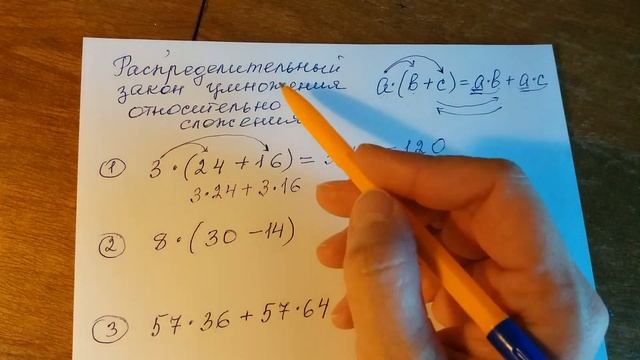 Распределительный
закон умножения
относительно
сложения
a·(b+c)=a·b+a·c
① 3·(24+16)=3 =120
3·24+3·16
② 8·(30-14)
③ 57·36+57·64